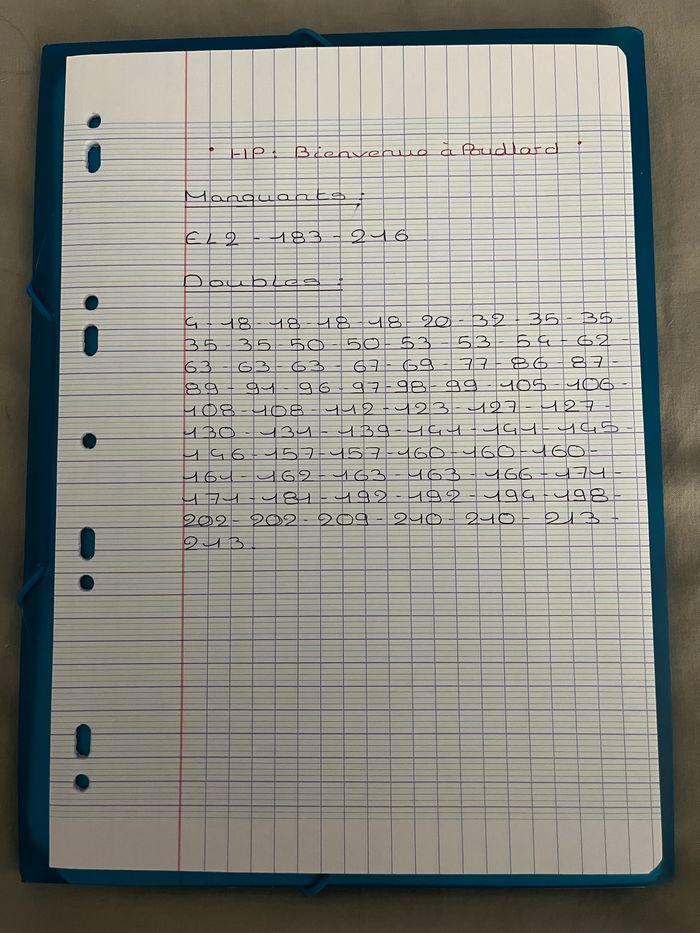 • HP : Bienvenue à Poudlard •
Manquants :
EL2 - 183 - 216
Doubles :
4 - 18 - 18 - 18 - 18 - 20 - 32 - 35 - 35 -
35 - 35 - 50 - 50 - 53 - 53 - 54 - 62 -
63 - 63 - 63 - 67 - 69 - 77 - 86 - 87 -
89 - 91 - 96 - 97 - 98 - 99 - 105 - 106 -
108 - 108 - 112 - 123 - 127 - 127 -
130 - 131 - 139 - 141 - 141 - 145 -
146 - 157 - 157 - 160 - 160 - 160 -
161 - 162 - 163 - 163 - 166 - 171 -
171 - 181 - 192 - 192 - 194 - 198 -
202 - 202 - 209 - 210 - 210 - 213 -
213.